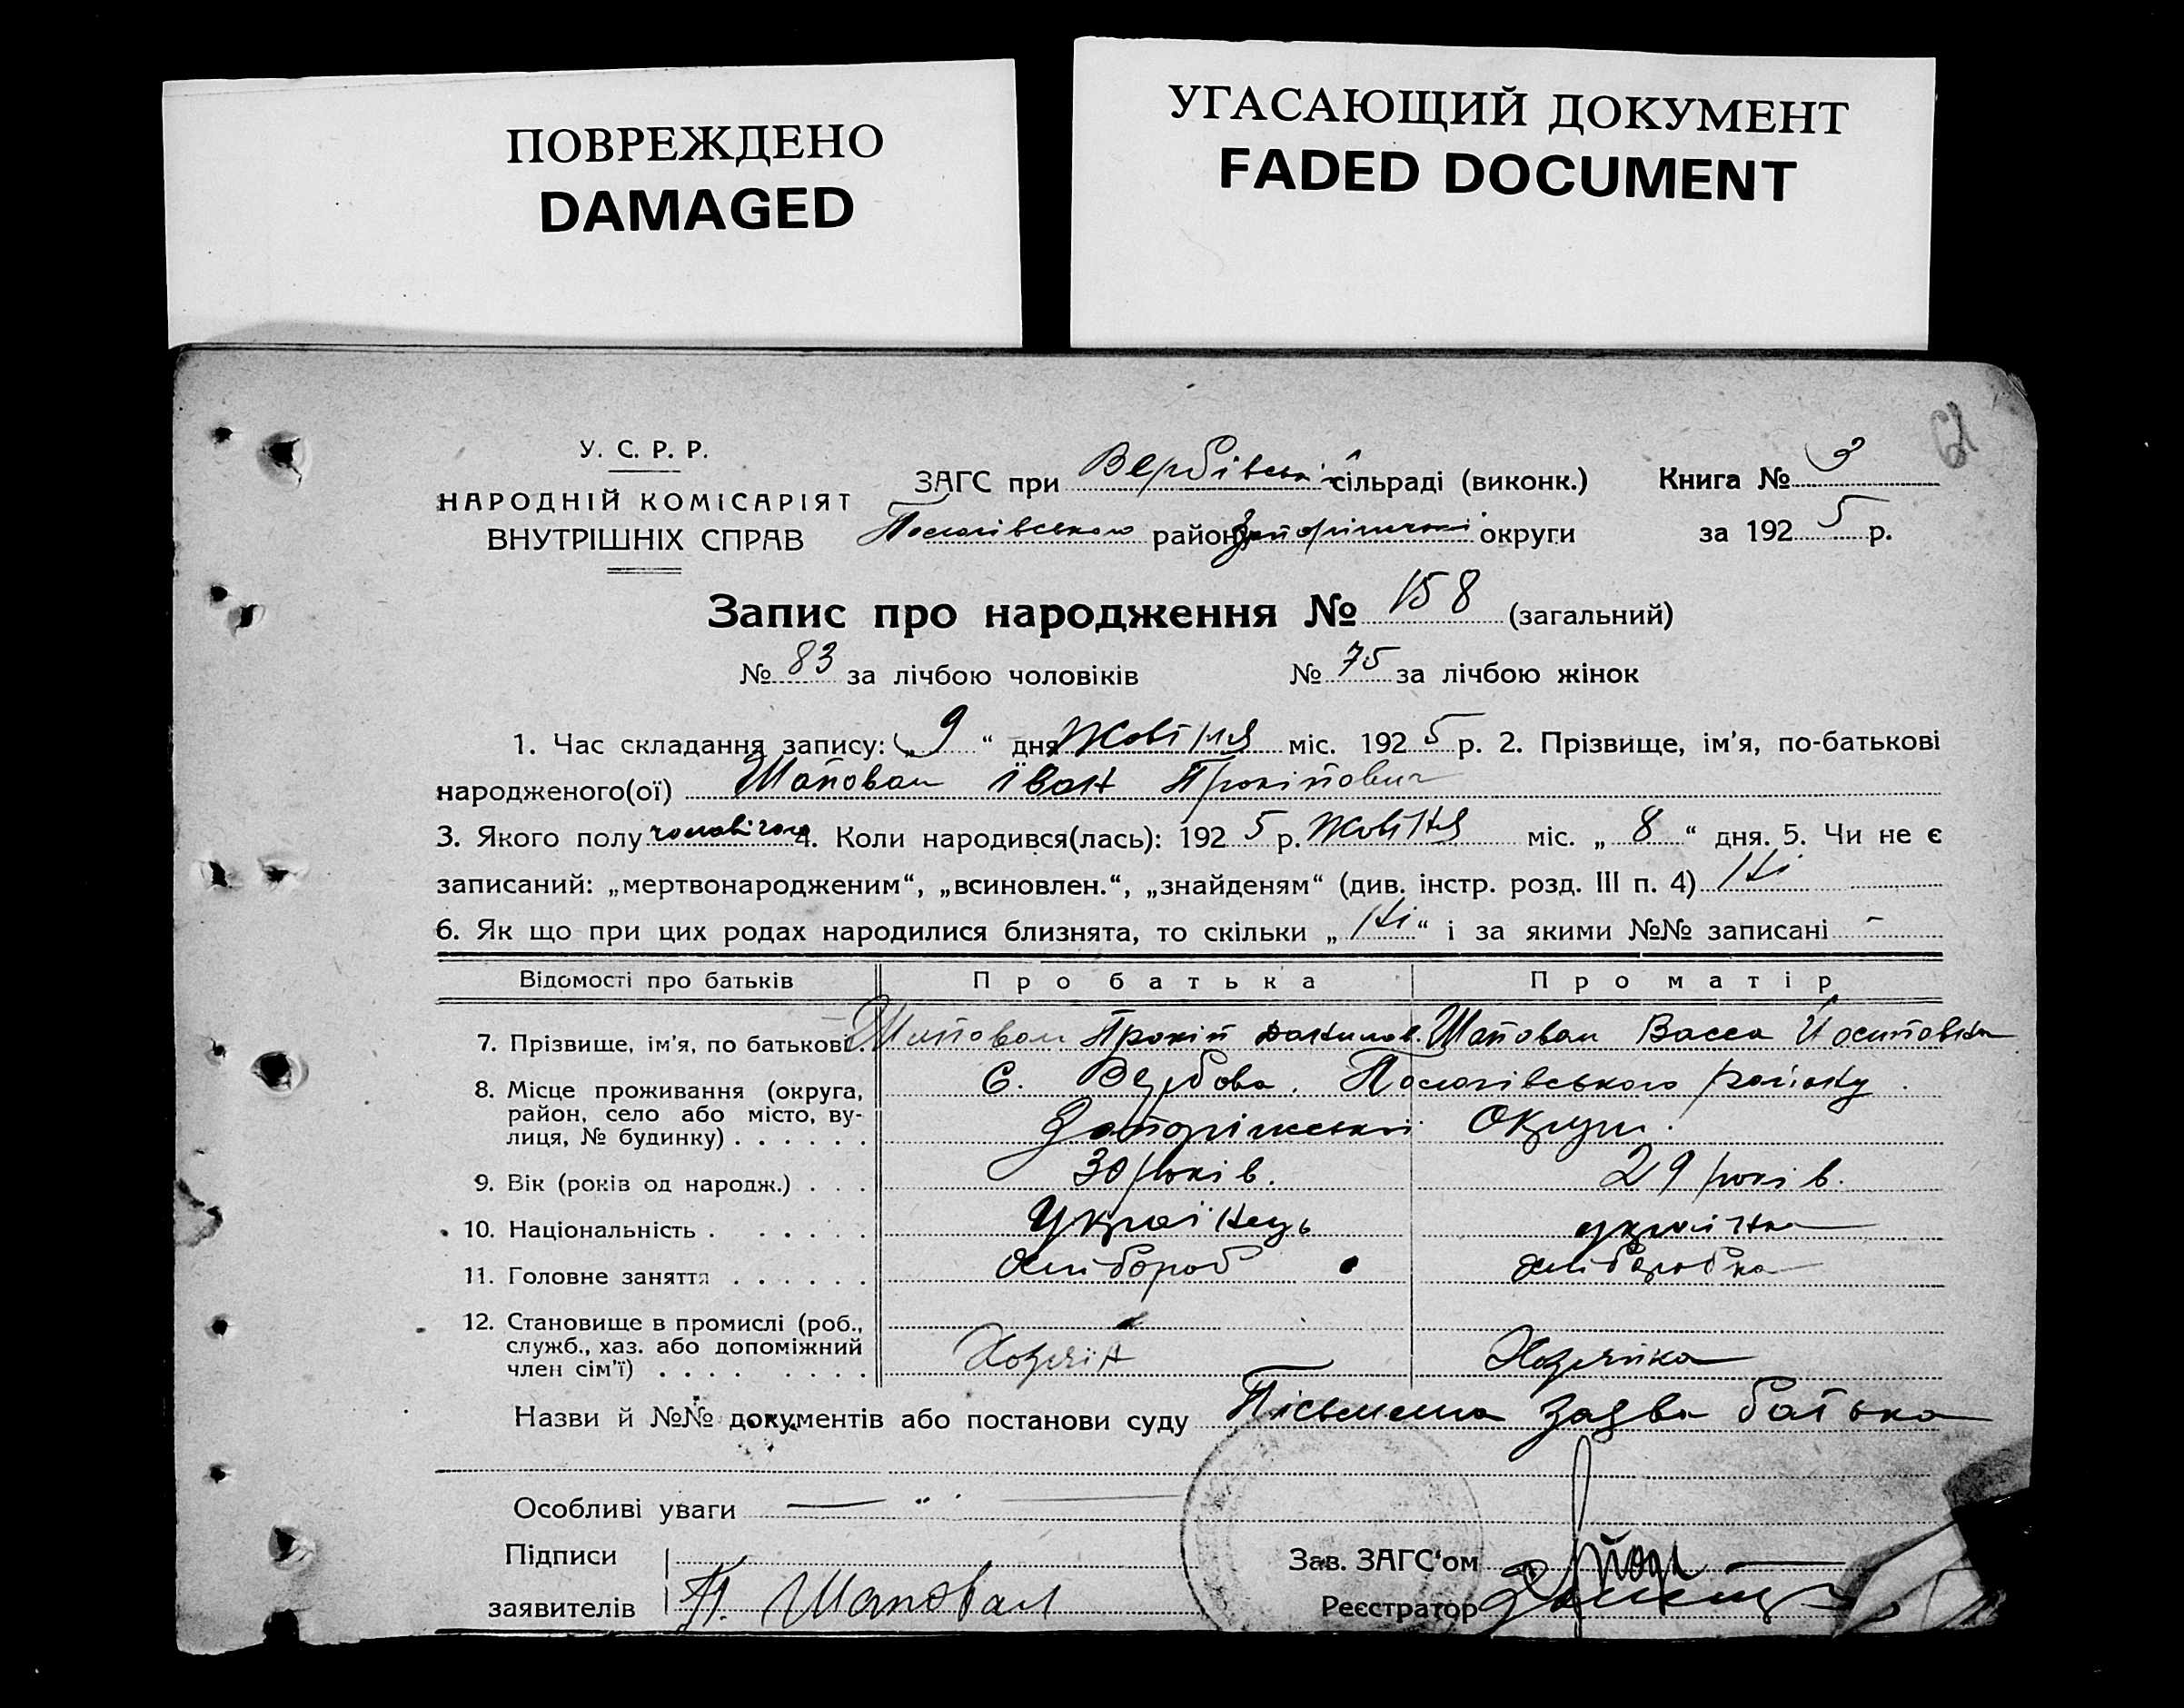 ПОВРЕЖДЕНО
DAMAGED
УГАСАЮЩИЙ ДОКУМЕНТ
FADED DOCUMENT
У. С. Р. Р.
НАРОДНІЙ КОМІСАРІЯТ
ВНУТРІШНІХ СПРАВ
ЗАГС при Вербівській сільраді (виконк.)
Пологівського району Запоріжської округи
Книга № 3
за 1925 р.
Запис про народження № 158 (загальний)
№ 83 за лічбою чоловіків № 75 за лічбою жінок
1. Час складання запису: „9“ дня Жовтня міс. 1925 р. 2. Прізвище, ім'я, по-батькові
народженого(ої) Шаповал Іван Прокіпович
3. Якого полу чоловічого 4. Коли народився(лась): 1925 р. Жовтня міс. „8“ дня. 5. Чи не є
записаний: „мертвонародженим“, „всиновлен.“, „знайденям“ (див. інстр. розд. III п. 4) Ні
6. Як що при цих родах народилися близнята, то скільки „Ні“ і за якими №№ записані -
Відомості про батьків Про батька Про матір
7. Прізвище, ім'я, по батькові. Шаповал Прокіп Данилов. Шаповал Васса Йосиповна
8. Місце проживання (округа, С. Вербова. Пологівського району.
район, село або місто, ву-
лиця, № будинку) . . . . . . Запоріжської Округи.
9. Вік (років од народж.) . . . 30 років. 29 років.
10. Національність . . . . . . Українець українка
11. Головне заняття . . . . . . Хлібороб хліборобка
12. Становище в промислі (роб.,
служб., хаз. або допоміжний
член сім'ї) . . . . . . . . Хозяїн Хозяйка
Назви й №№ документів або постанови суду Пісьмена заява батька
Особливі уваги — „ —
Підписи
заявителів П. Шаповал
Зав. ЗАГС'ом
Реєстратор